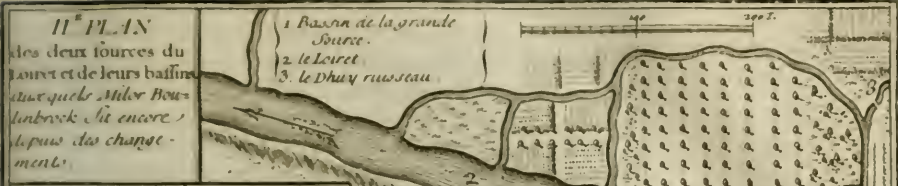 II.e PLAN
des deux sources du
Loiret et de leurs bassins
auxquels Milor Bou=
linbrock fit encore
depuis des change-
ments.
1 Bassin de la grande
Source.
2 le Loiret
3. le Dhuy ruisseau.
100 200 T.
3
2